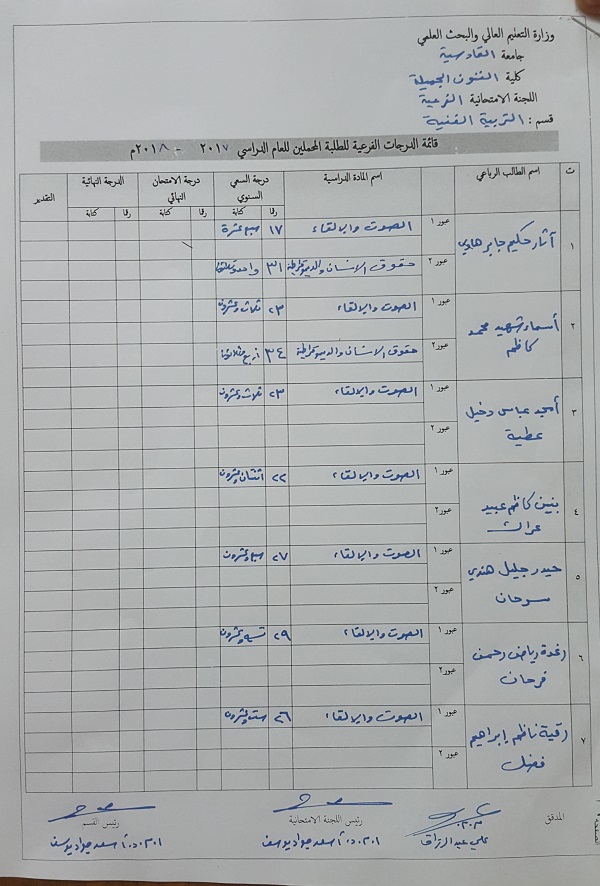 وزارة التعليم العالي والبحث العلمي
جامعة القادسية
كلية الفنون الجميلة
اللجنة الامتحانية الفرعية
قسم : التربية الفنية
قائمة الدرجات الفرعية للطلبة المحملين للعام الدراسي ٢٠١٧ - ٢٠١٨م
ت اسم الطالب الرباعي اسم المادة الدراسية درجة السعي السنوي درجة الامتحان النهائي الدرجة النهائية التقدير
رقما كتابة رقما كتابة رقما كتابة
١ آثار حكيم جابر هادي عبور ١ الصوت والالقاء ١٧ سبع عشرة
عبور ٢ حقوق الانسان والديموقراطية ٣١ واحد وثلاثون
٢ أسماء شهيد محمد كاظم عبور ١ الصوت والالقاء ٢٣ ثلاث وعشرون
عبور ٢ حقوق الانسان والديموقراطية ٣٤ اربع وثلاثون
٣ أمجد عباس دخيل عطية عبور ١ الصوت والالقاء ٢٣ ثلاث وعشرون
عبور ٢
٤ بنين كاظم عبيد عبور ١ الصوت والالقاء ٢٢ اثنتان وعشرون
عبور ٢
٥ حيدر جليل هندي سرحان عبور ١ الصوت والالقاء ٢٧ سبع وعشرون
عبور ٢
٦ رغدة رياض رحمن فرحان عبور ١ الصوت والالقاء ٢٩ تسع وعشرون
عبور ٢
٧ رقية ناظم إبراهيم فضل عبور ١ الصوت والالقاء ٢٦ ست وعشرون
عبور ٢
المدقق رئيس اللجنة الامتحانية رئيس القسم
علي عبد الرزاق أ.م.د. أسعد جواد يوسف أ.م.د. أسعد جواد يوسف